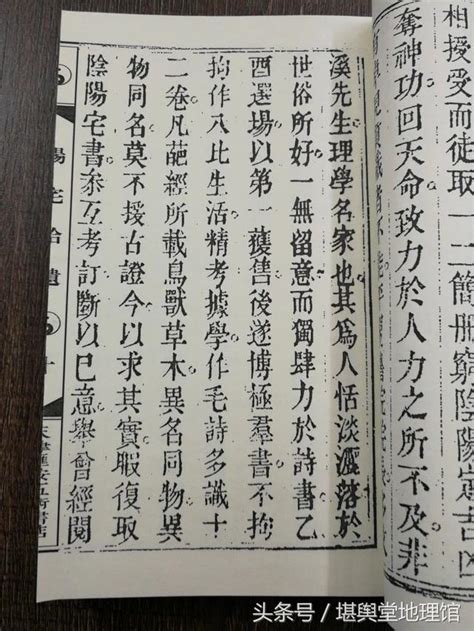 相授受而徒取一二簡冊窮陰陽定吉凶
奪神功回天命致力於人力之所不及非
溪先生理學名家也其爲人恬淡灑落於
世俗所好一無留意而獨肆力於詩書乙
酉選場以第一獲售後遂博極羣書不拘
拘作八比生活精考據學作毛詩多識十
二卷凡葩經所載鳥獸草木異名同物異
物同名莫不援古證今以求其實暇復取
陰陽宅書叅互考訂斷以巳意舉曾經閱
陽宅拾遺
头条号／堪舆堂地理馆